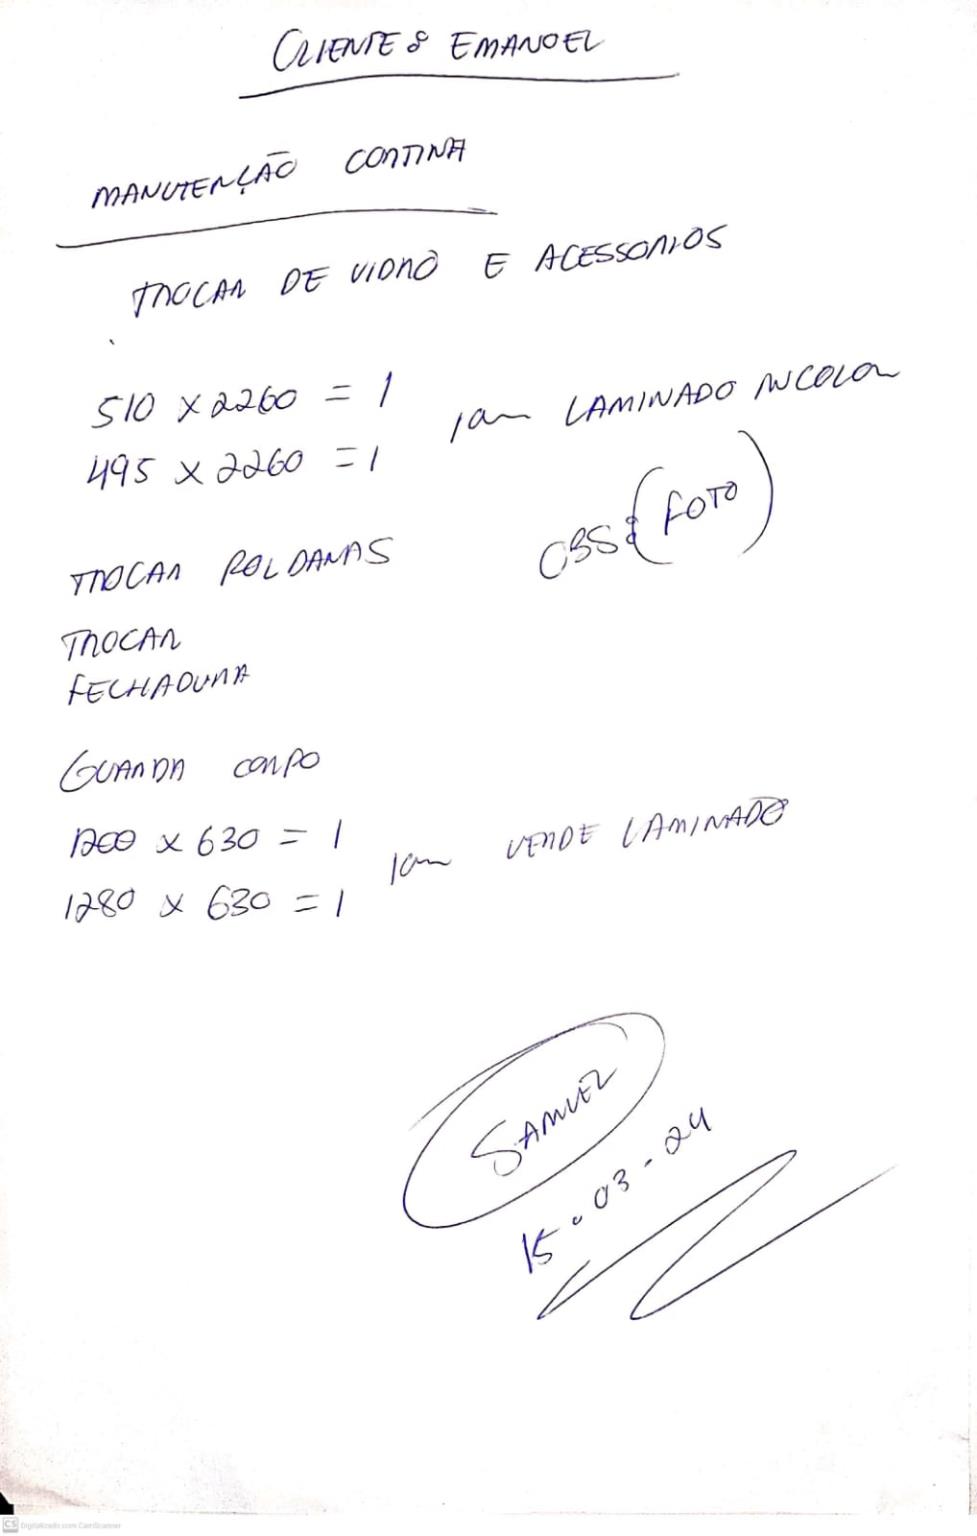 CLIENTE: EMANOEL
MANUTENÇÃO CORTINA
TROCAR DE VIDRO E ACESSORIOS
510 x 2260 = 1
495 x 2260 = 1
LAMINADO INCOLOR
OBS: (FOTO)
TROCAR ROLDANAS
TROCAR
FECHADURA
GUARDA CORPO
x 630 = 1
1280 x 630 = 1
VERDE LAMINADO
SAMUEL
15.03-24
CS Digitalizado com CamScanner